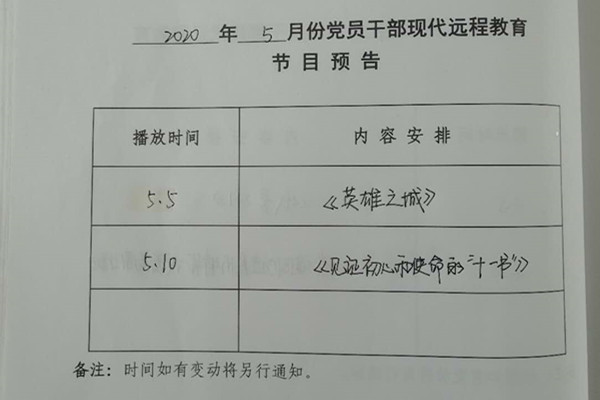 2020 年 5 月份党员干部现代远程教育
节目预告
播放时间 内容安排
5.5 《英雄之城》
5.10 《见证初心和使命的“十一书”》
备注：时间如有变动将另行通知。